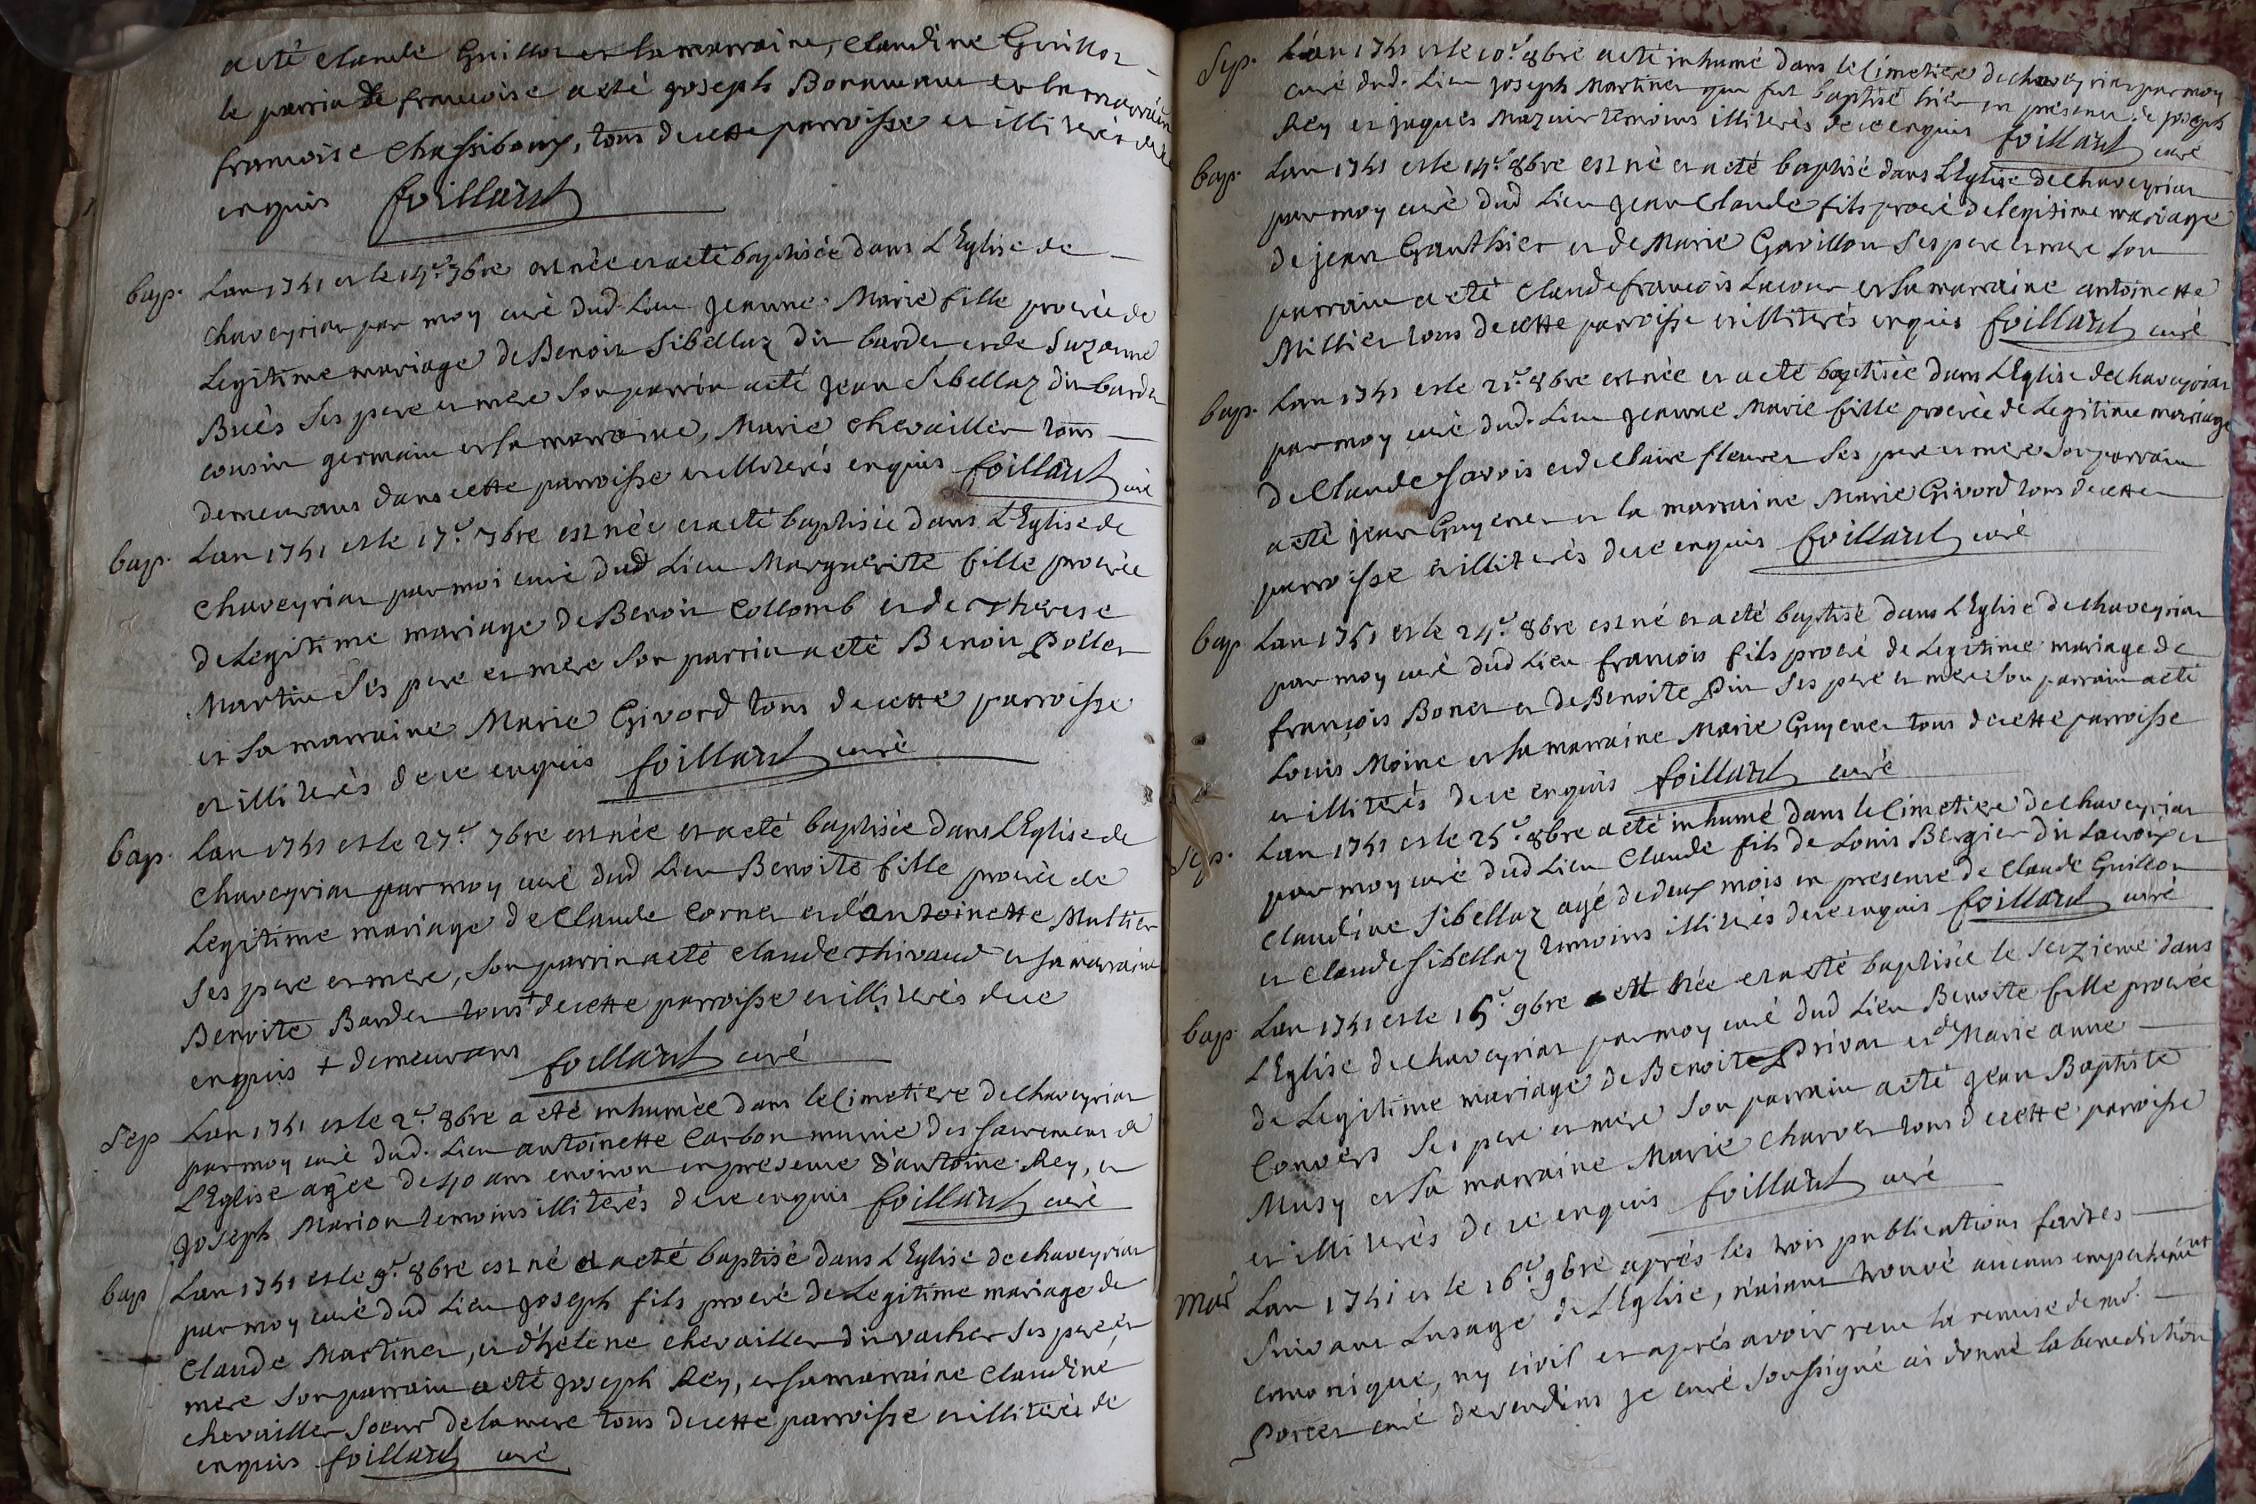 a eté Claude Guillot et la marraine, Claudine Guillot
le parrin de francoise a eté joseph et la marraine
francoise tous de cette parroisse et illiterés de ce
enquis foillard
bap. Lan 1741 et le 14e 7bre est née et a eté baptisée dans L'Eglise de
Chaveyriat par moy curé dud. Lieu Jeanne Marie fille procréé de
Legitime mariage de Benoit Sibellaz dit bardet et de Suzanne
Buès Ses pere et mere Son parrin a eté jean Sibellaz dit bardet
cousin germain et Sa marraine, Marie chevaillet tous
demeurans dans cette parroisse et illiterés enquis foillard curé
bap. Lan 1741 et le 17e 7bre est née et a eté baptisée dans L'Eglise de
Chaveyriat par moi curé dud Lieu Marguerite fille procréé
de Legitime mariage de Benoit Collomb et de Therese
Martin Ses pere et mere Son parrin a eté Benoit Pollet
et Sa marraine Marie Givord tous de cette parroisse
et illiterés de ce enquis foillard curé
bap. Lan 1741 et le 27e 7bre est née et a eté baptisée dans L'Eglise de
Chaveyriat par moy curé dud Lieu Benoite fille procréé de
Legitime mariage de Claude Cornet et d'antoinette Multier
Ses pere et mere, Son parrin a eté Claude Thivaud et Sa marraine
Benoite Bardet tous + de cette parroisse et illiterés de ce
enquis + demeurans foillard curé
Sep Lan 1741 et le 2e 8bre a eté inhumée dans le Cimetiere de Chaveyriat
par moy curé dud. Lieu antoinette Carbon munie des Sacremens de
L'Eglise agée de 40 ans environ en presence d'antoine Rey, et
Joseph Marion temoins illiterés de ce enquis foillard curé
bap Lan 1741 et le 9e 8bre est né et a eté baptisé dans L'Eglise de chaveyriat
par moy curé dud Lieu Joseph fils procréé de Legitime mariage de
Claude Martinet, et d'helene chevaillet dit vacher Ses pere et
mere Son parrain a eté Joseph Rey, et Sa marraine Claudine
chevaillet Soeur de la mere tous de cette parroisse et illiterés de
enquis foillard curé
Sep. L'an 1741 et le 10e 8bre a eté inhumé dans le Cimetiere de chaveyriat par moy
curé dud. Lieu Joseph Martinet qui fut baptisé hier en presence de joseph
Rey et jaques Mazuir temoins illiterés de ce enquis foillard curé
bap. Lan 1741 et le 14e 8bre est né et a eté baptisé dans L'Eglise de Chaveyriat
par moy curé dud Lieu Jean Claude fils procréé de legitime mariage
de jean Gauthier et de Marie Gavillon Ses pere et mere Son
parrain a eté Claude francois Lacour et Sa marraine antoinette
Millier tous de cette parroisse et illiterés enquis foillard curé
bap. Lan 1741 et le 21e 8bre est née et a eté baptisée dans L'Eglise de Chaveyriat
par moy curé dud. Lieu Jeanne Marie fille procréé de Legitime mariage
de Claude Sarvis et de Claire fleuret Ses pere et mere Son parrain
a eté jean Guyenet et la marraine Marie Givord tous de cette
parroisse et illiterés de ce enquis foillard curé
bap Lan 1741 et le 24e 8bre est né et a eté baptisé dans L'Eglise de Chaveyriat
par moy curé dud Lieu francois fils procréé de Legitime mariage de
françois Bonet et de Benoite Pin Ses pere et mere Son parrain a eté
Louis Moine et Sa marraine Marie Guyenet tous de cette parroisse
et illiterés de ce enquis foillard curé
Sep. Lan 1741 et le 25e 8bre a eté inhumé dans le Cimetiere de Chaveyriat
par moy curé dud Lieu Claude fils de Louis Bergier dit Lacroix et
Claudine Sibellaz agé de deux mois en presence de Claude Guillon
et Claude Sibellaz temoins illiterés de ce enquis foillard curé
bap Lan 1741 et le 15e 9bre est née et a eté baptisée le Seizieme dans
L'Eglise de Chaveyriat par moy curé dud Lieu Benoite fille procréé
de Legitime mariage de Benoite Privat et de Marie anne
Convers Ses pere et mere Son parrain a eté Jean Baptiste
Musy et Sa marraine Marie Charvet tous de cette parroisse
et illiterés de ce enquis foillard curé
Mar Lan 1741 et le 16e 9bre aprés les trois publications faites
Suivant Lusage de L'Eglise, n'aiant trouvé aucuns empechement
canonique, ny civil et aprés avoir reçu la remise de mr.
Porcet curé de vendins je curé Soussigné ai donné la benediction